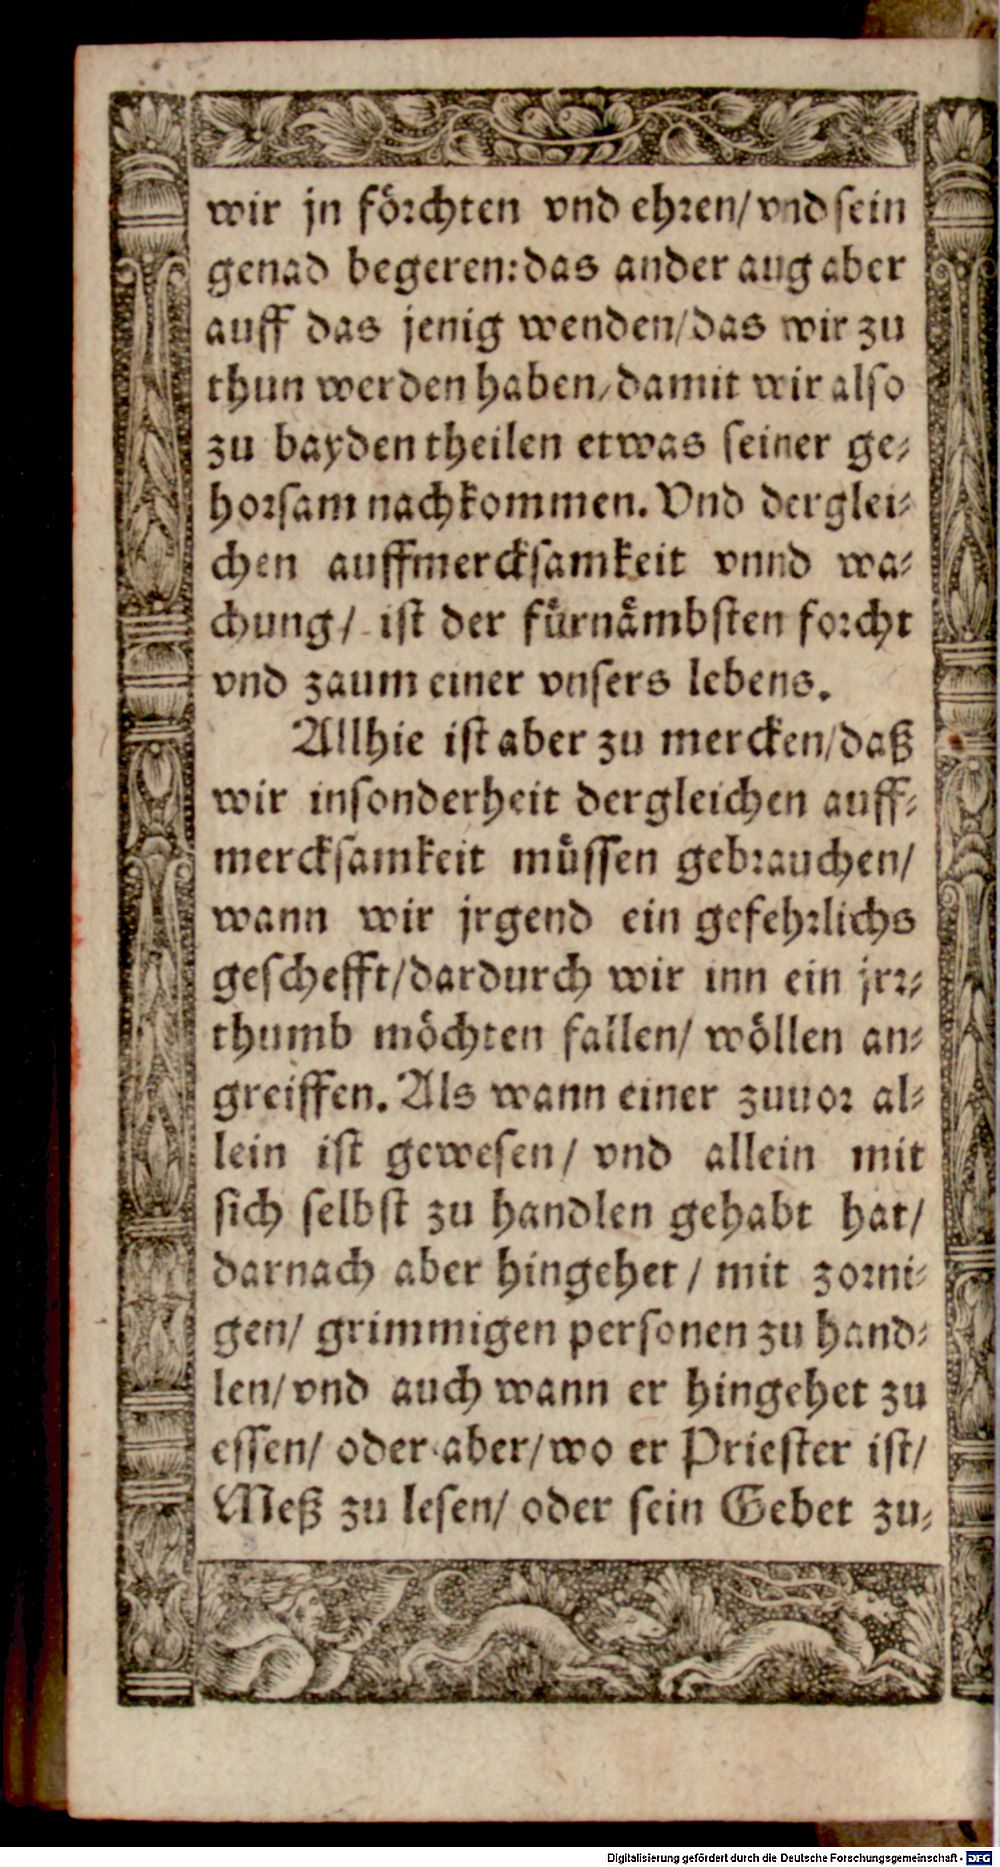 wir jn förchten vnd ehren/ vnd sein
genad begeren: das ander aug aber
auff das jenig wenden/ das wir zu
thun werden haben/ damit wir also
zu bayden theilen etwas seiner ge-
horsam nachkommen. Vnd derglei-
chen auffmercksamkeit vnnd wa-
chung/ ist der fürnämbsten forcht
vnd zaum einer vnsers lebens.
Allhie ist aber zu mercken/ daß
wir insonderheit dergleichen auff-
mercksamkeit müssen gebrauchen/
wann wir jrgend ein gefehrlichs
geschefft/ dardurch wir inn ein jrr-
thumb möchten fallen/ wöllen an-
greiffen. Als wann einer zuuor al-
lein ist gewesen/ vnd allein mit
sich selbst zu handlen gehabt hat/
darnach aber hingehet/ mit zorni-
gen/ grimmigen personen zu hand-
len/ vnd auch wann er hingehet zu
essen/ oder aber/ wo er Priester ist/
Meß zu lesen/ oder sein Gebet zu-
Digitalisierung gefördert durch die Deutsche Forschungsgemeinschaft - DFG